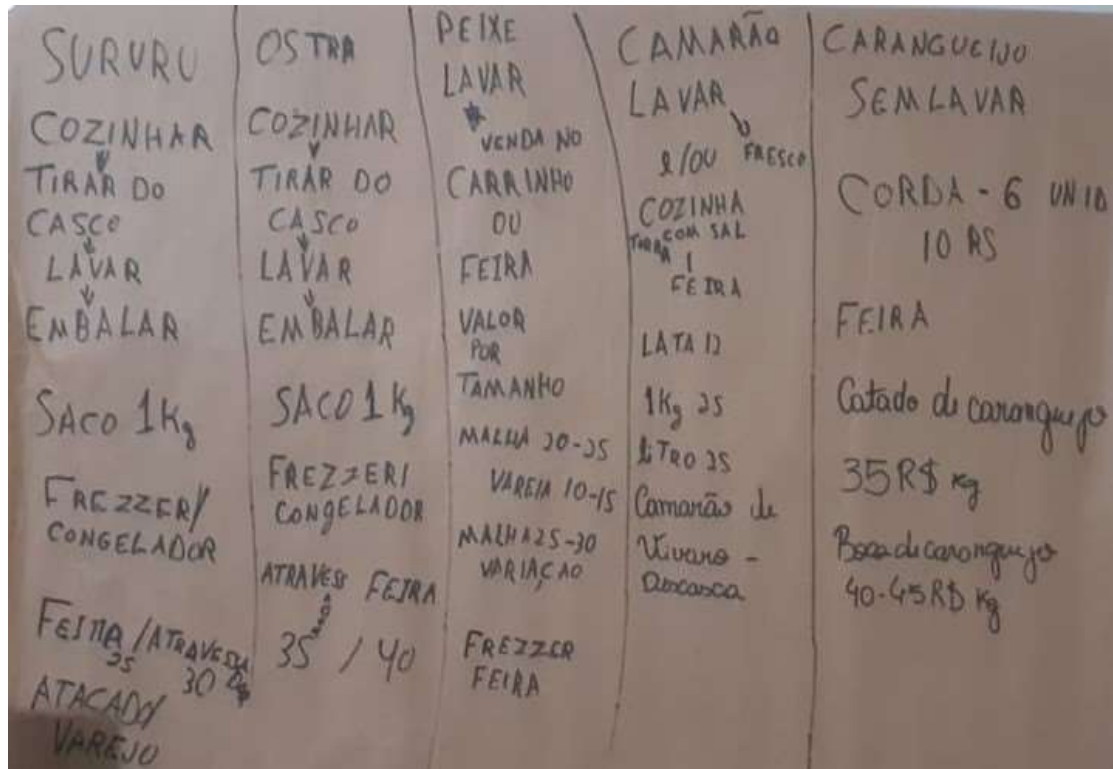 SURURU
COZINHAR
TIRAR DO
CASCO
LAVAR
EMBALAR
SACO 1Kg
FREZZER/
CONGELADOR
FEIRA /ATRAVESSA
25 30 R$
ATACADO/
VAREJO
OSTRA
COZINHAR
TIRAR DO
CASCO
LAVAR
EMBALAR
SACO 1Kg
FREZZER/
CONGELADOR
ATRAVESS FEIRA
35 / 40
PEIXE
LAVAR
VENDA NO
CARRINHO
OU
FEIRA
VALOR
POR
TAMANHO
MALHA 20-25
VAREIA 10-15
MALHA 25-30
VARIAÇAO
FREZZER
FEIRA
CAMARÃO
LAVAR
FRESCO
e/OU
COZINHA
COM SAL
TORRA
FEIRA
LATA 12
1Kg 25
LITRO 25
Camarão de
Viveiro -
descasca
CARANGUEIJO
SEM LAVAR
CORDA - 6 UNID
10 RS
FEIRA
Catado de caranguejo
35R$ Kg
Boca de caranguejo
40-45R$ Kg